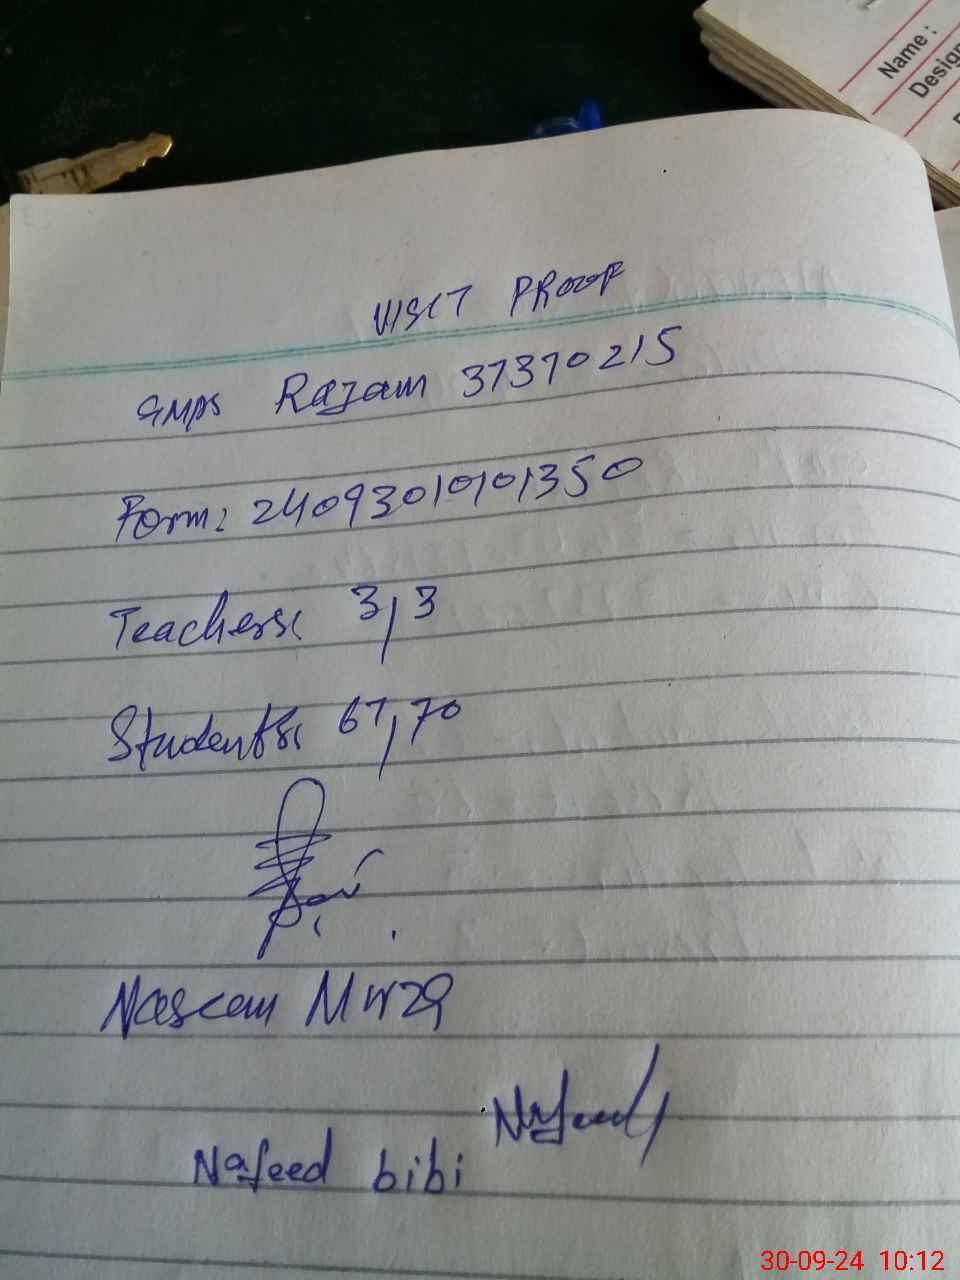 Name :
Design
VISIT PROOF
GMPS Rajam 37370215
Form: 24093010101350
Teachers: 3/3
Students: 67/70
Naseem Mirza
Nafeed bibi
30-09-24 10:12